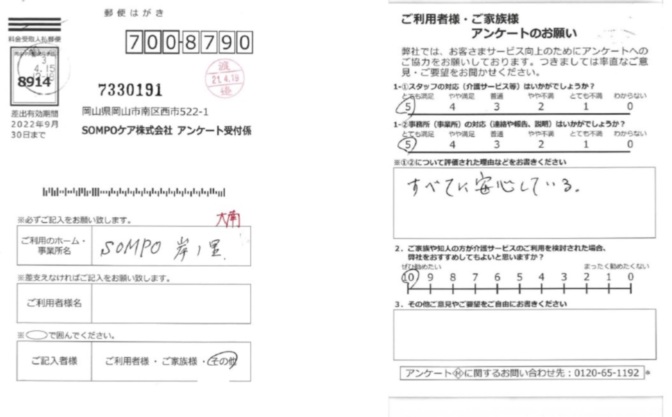 郵便はがき
料金受取人払郵便
8914
差出有効期間
2022年9月
30日まで
700-8790
21.4.19
7330191
岡山県岡山市南区西市522-1
SOMPOケア株式会社 アンケート受付係
※必ずご記入をお願い致します。
大南
ご利用のホーム・
事業所名
SOMPO 岸ノ里
※差支えなければご記入をお願い致します。
ご利用者様名
※で囲んでください。
ご記入者様
ご利用者様・ご家族様・その他
ご利用者様・ご家族様
アンケートのお願い
弊社では、お客さまサービス向上のためにアンケートへの
ご協力をお願いしております。つきましては率直なご意
見・ご要望をお聞かせください。
1-①スタッフの対応（介護サービス等）はいかがでしょうか？
とても満足 やや満足 普通 やや不満 とても不満 わからない
5 4 3 2 1 0
1-②事務所（事業所）の対応（連絡や報告、説明）はいかがでしょうか？
とても満足 やや満足 普通 やや不満 とても不満 わからない
5 4 3 2 1 0
※①②について評価された理由などをお書きください
すべてに安心している。
2．ご家族や知人の方が介護サービスのご利用を検討された場合、
弊社をおすすめしてもよいと思いますか？
ぜひ勧めたい まったく勧めたくない
10 9 8 7 6 5 4 3 2 1 0
3．その他ご意見やご要望をご自由にお書きください
アンケートに関するお問い合わせ先：0120-65-1192